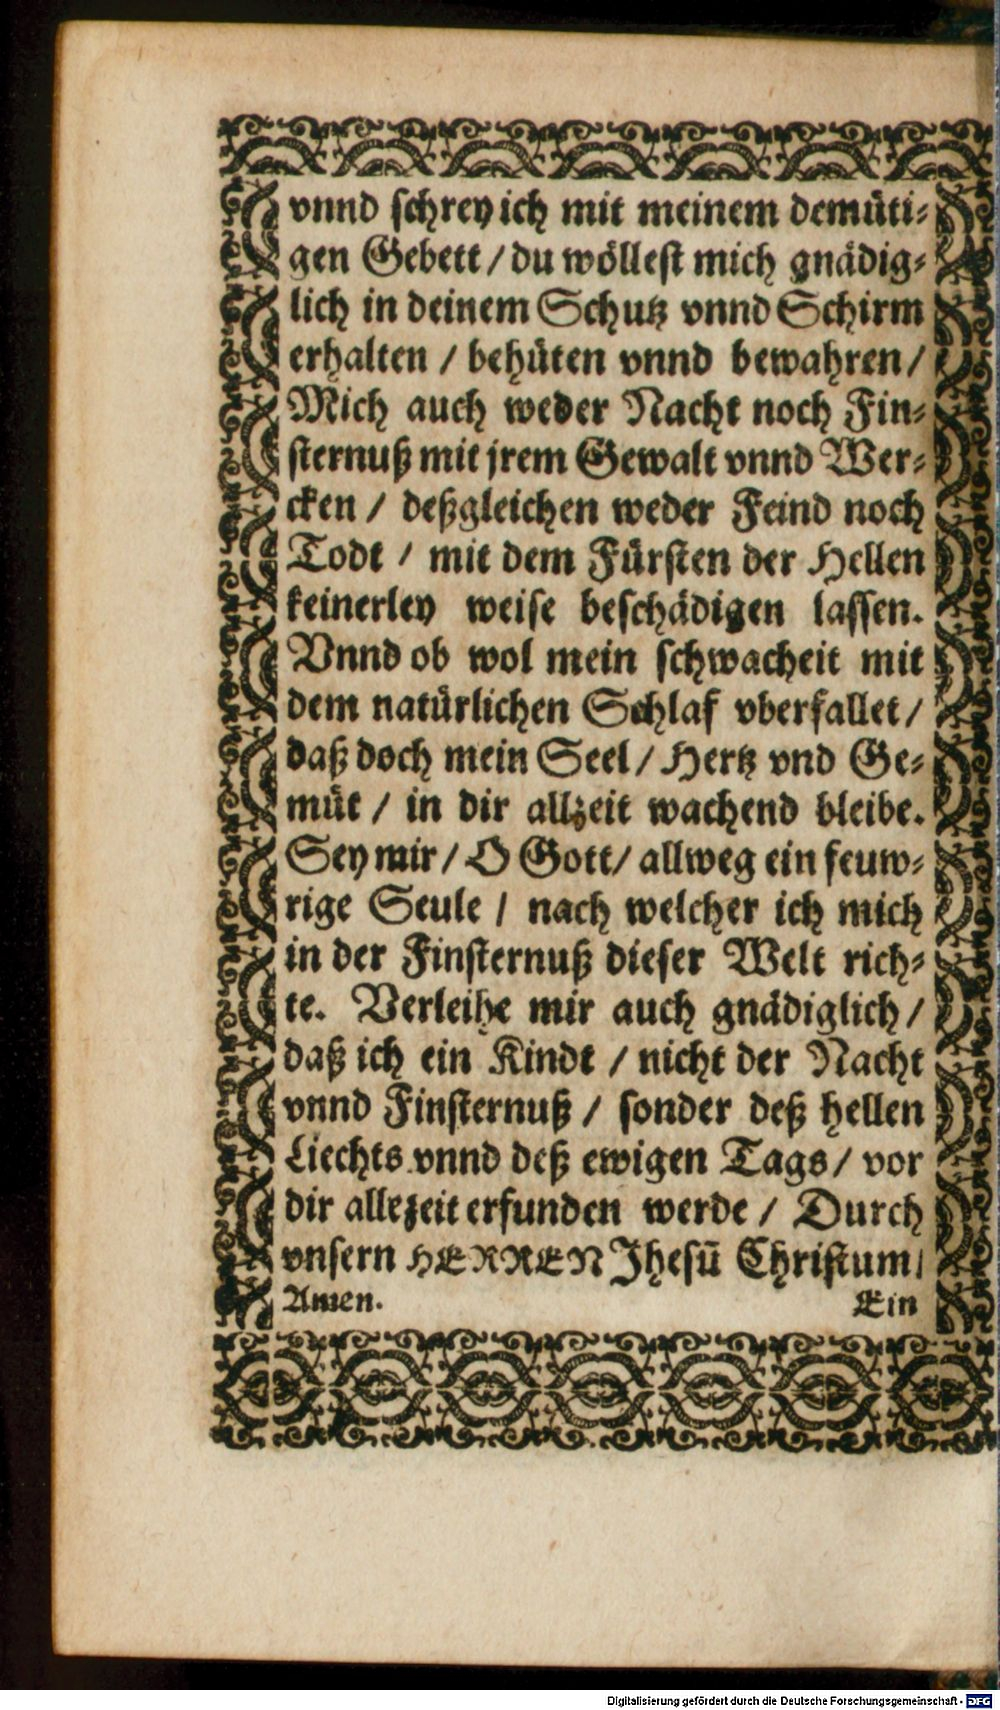 vnnd schrey ich mit meinem demüti⸗
gen Gebett / du wöllest mich gnädig⸗
lich in deinem Schutz vnnd Schirm
erhalten / behüten vnnd bewahren /
Mich auch weder Nacht noch Fin⸗
sternuß mit jrem Gewalt vnnd Wer⸗
cken / deßgleichen weder Feind noch
Todt / mit dem Fürsten der Hellen
keinerley weise beschädigen lassen.
Vnnd ob wol mein schwacheit mit
dem natürlichen Schlaf vberfallet /
daß doch mein Seel / Hertz vnd Ge⸗
müt / in dir allzeit wachend bleibe.
Sey mir / O Gott / allweg ein feuw⸗
rige Seule / nach welcher ich mich
in der Finsternuß dieser Welt rich⸗
te. Verleihe mir auch gnädiglich /
daß ich ein Kindt / nicht der Nacht
vnnd Finsternuß / sonder deß hellen
Liechts vnnd deß ewigen Tags / vor
dir allezeit erfunden werde / Durch
vnsern HERREN Jhesū Christum /
Amen. Ein
Digitalisierung gefördert durch die Deutsche Forschungsgemeinschaft - DFG